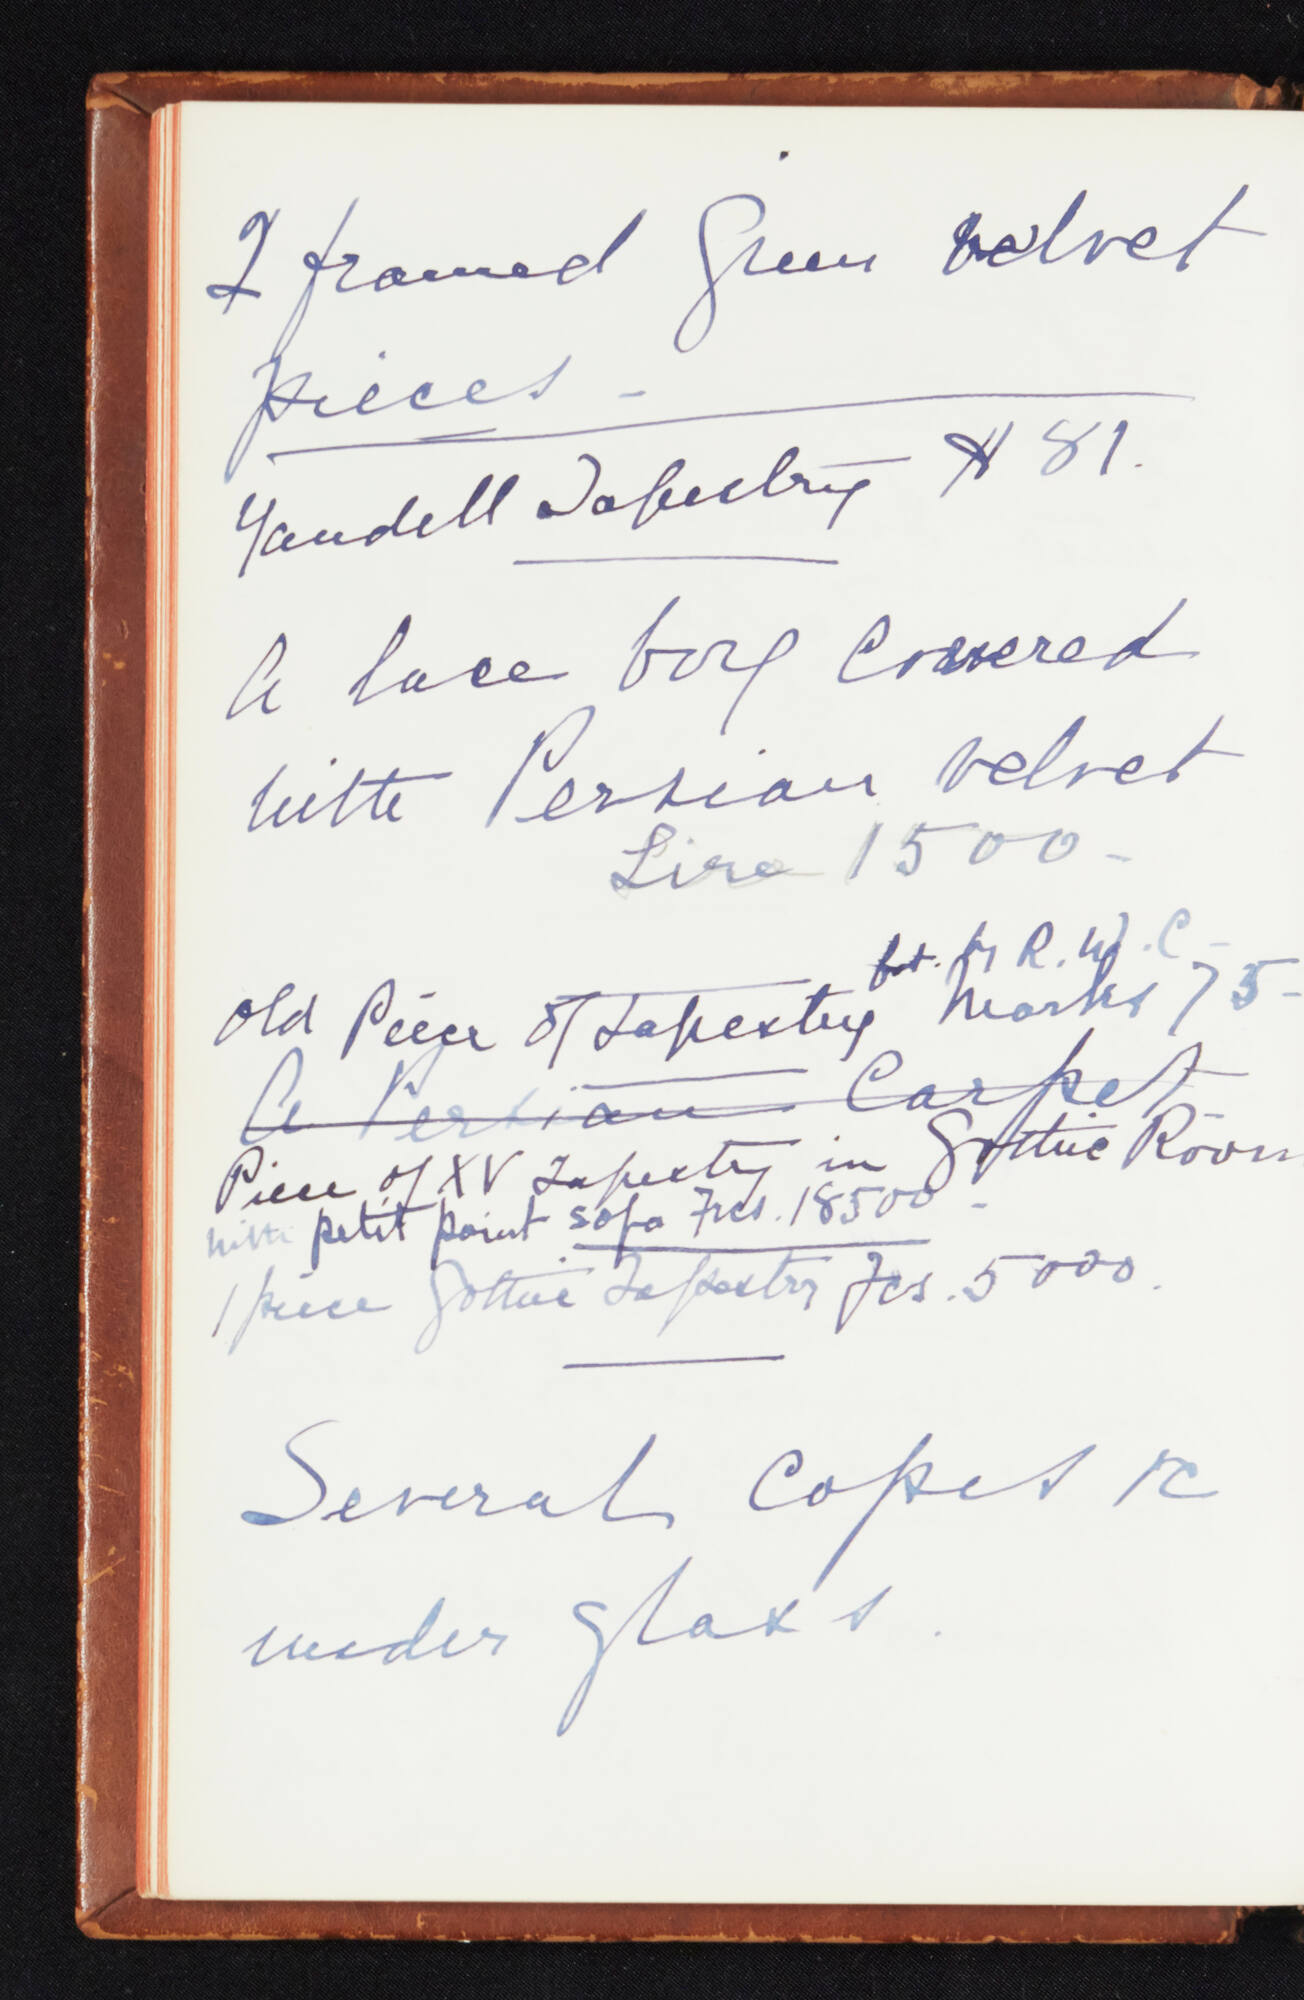 2 framed Green velvet
pieces -
Yandell Tapestry # 81.
A lace box covered
with Persian velvet
Lire 1500-
bt. by R.W.C-
Old Piece of Tapestry Marks 75-
A Persian Carpet
Piece of XV Tapestry in Gothic Room
with petit point sofa Frcs. 18500-
1 piece Gothic Tapestry Fcs. 5000.
Several Copes &c
under glass.